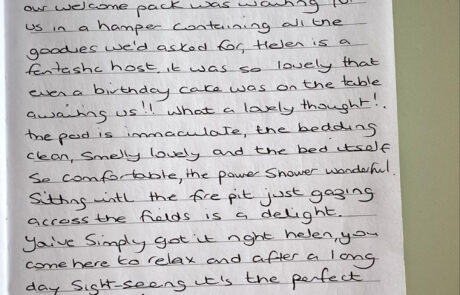 our welcome pack was waiting for
us in a hamper containing all the
goodies we'd asked for, Helen is a
fantastic host, it was so lovely that
even a birthday cake was on the table
awaiting us!! What a lovely thought!.
The pod is immaculate, the bedding
clean, smelly lovely and the bed itself
so comfortable, the power shower wonderful.
Sitting with the fire pit just gazing
across the fields is a delight.
You've simply got it right helen, you
come here to relax and after a long
day sight-seeing it's the perfect